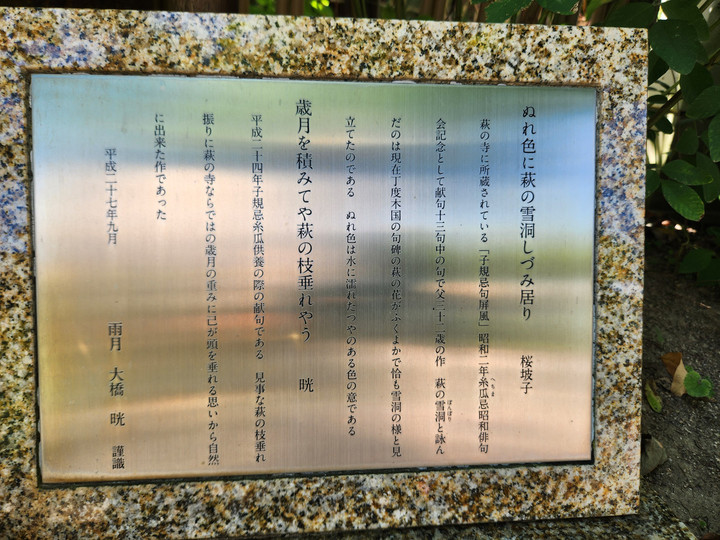 ぬれ色に萩の雪洞しづみ居り　桜坡子
萩の寺に所蔵されている「子規忌句屏風」昭和二年糸瓜忌昭和俳句
へちま
会記念として献句十三句中の句で父三十二歳の作　萩の雪洞と詠ん
ぼんぼり
だのは現在丁度木国の句碑の萩の花がふくよかで恰も雪洞の様と見
立てたのである　ぬれ色は水に濡れたつやのある色の意である
歳月を積みてや萩の枝垂れやう　晄
平成二十四年子規忌糸瓜供養の際の献句である　見事な萩の枝垂れ
振りに萩の寺ならではの歳月の重みに己が頭を垂れる思いから自然
に出来た作であった
平成二十七年九月
雨月　大橋　晄　謹識